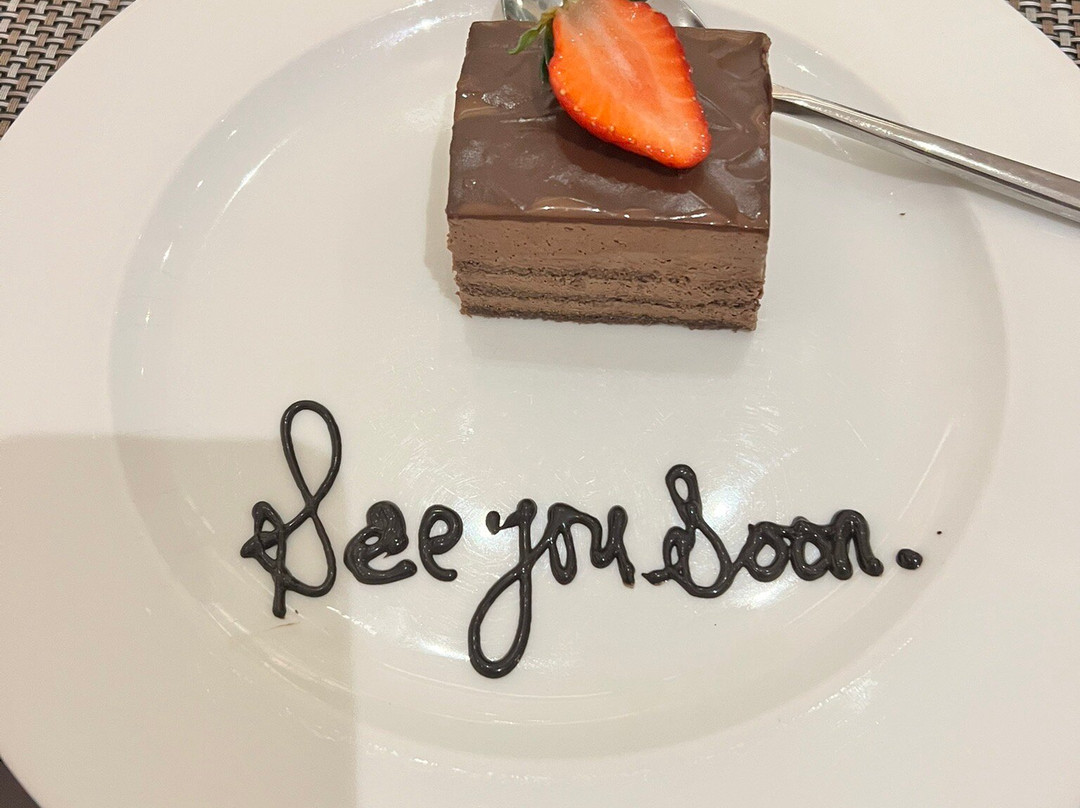 See you Soon.